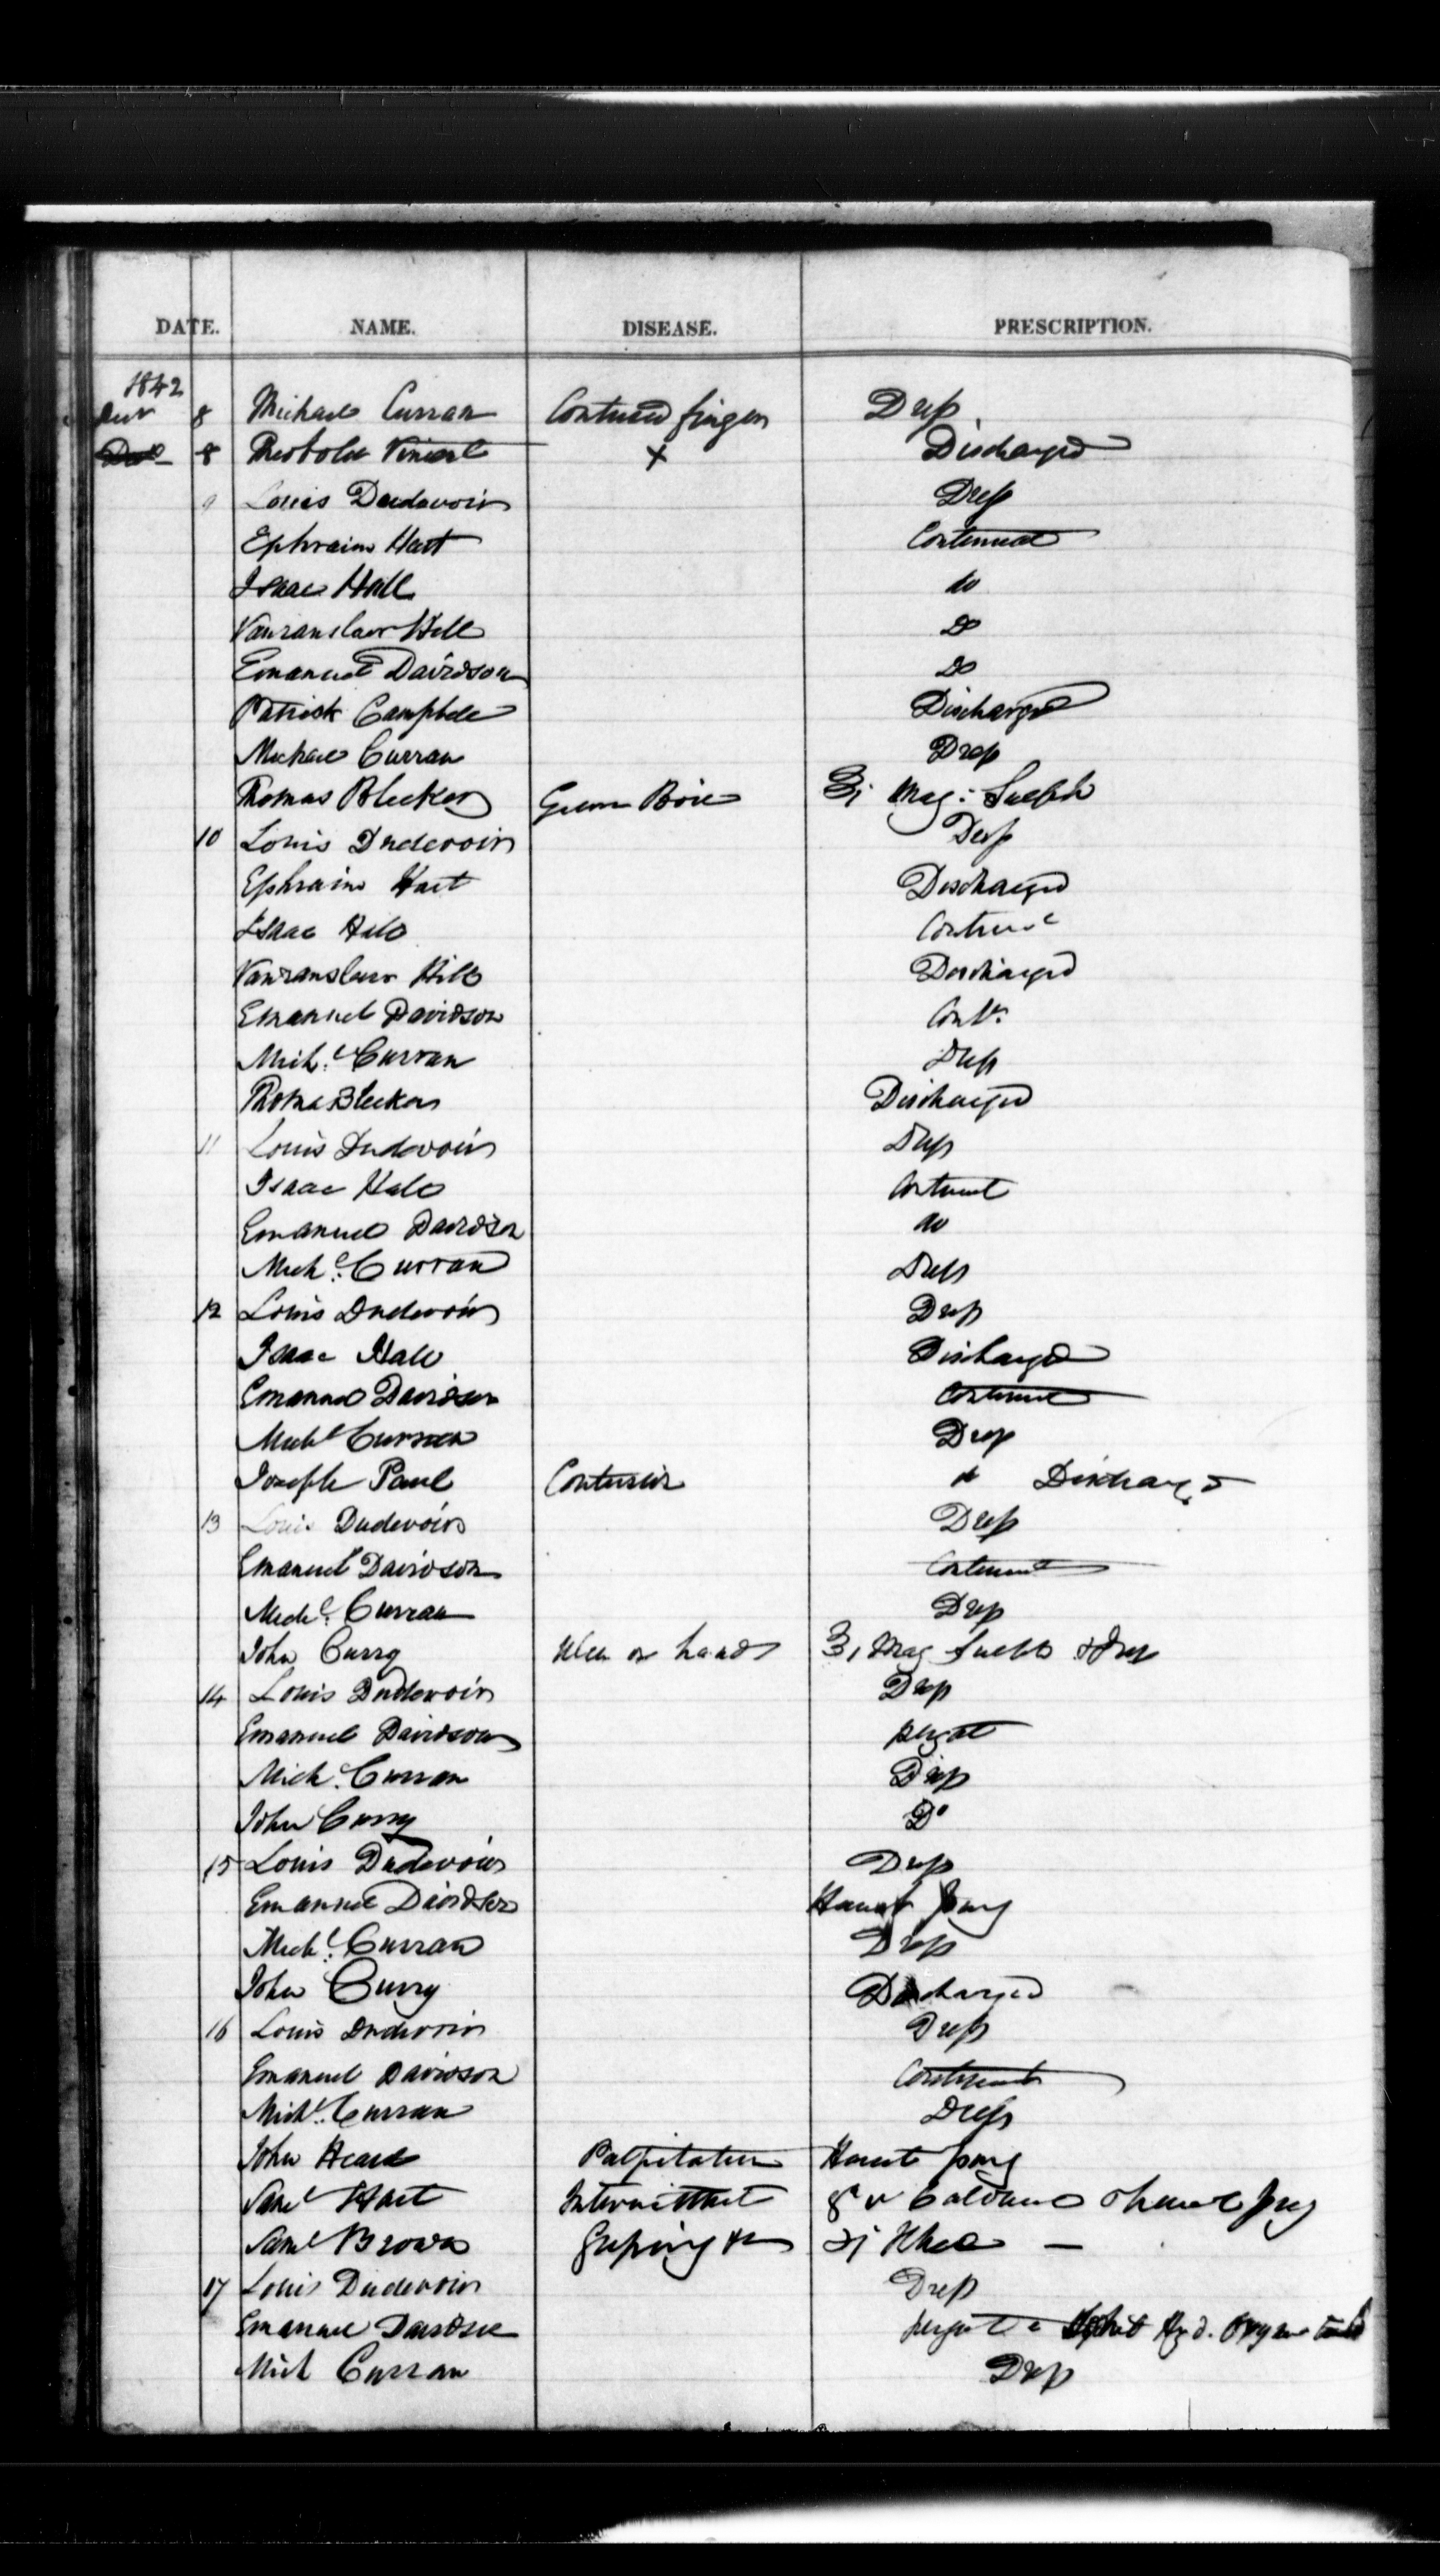 DATE. NAME. DISEASE. PRESCRIPTION.
1842
8 Michael Curran Contused finger Dress
8 Vincent x Discharged
9 Louis Dudevoir Dress
Ephraim Hart Continued
Isaac Hall do
Vanranslaer Hill Do
Emanuel Davidson Do
Patrick Campbell Discharged
Michael Curran Dress
Thomas Bleeker Gum Boil ℥i Mag: Sulph
10 Louis Dudevoir Dress
Ephraim Hart Discharged
Isaac Hall Continue
Vanranslaer Hill Discharged
Emanuel Davidson Contd
Michl Curran Dress
Thomas Bleeker Discharged
11 Louis Dudevoir Dress
Isaac Hall Continued
Emanuel Davidson do
Michl. Curran Dress
12 Louis Dudevoir Dress
Isaac Hall Discharged
Emanuel Davidson Continued
Michl Curran Dress
Joseph Paul Contusion Discharged
13 Louis Dudevoir Dress
Emanuel Davidson Continued
Michl. Curran Dress
John Curry Ulcer on hand ℥i Mag Sulph & Dress
14 Louis Dudevoir Dress
Emanuel Davidson pergat
Mich. Curran Dress
John Curry Do
15 Louis Dudevoir Dress
Emanuel Davidson Haust purg
Michl. Curran Dress
John Curry Discharged
16 Louis Dudevoir Dress
Emanuel Davidson Continued
Michl. Curran Dress
John Heard Palpitation Haust purg
Saml Hart Intermittent
Saml Brown Griping Rhei —
17 Louis Dudevoir Dress
Emanuel Davidson pergat Hyd.
Mich Curran Dress